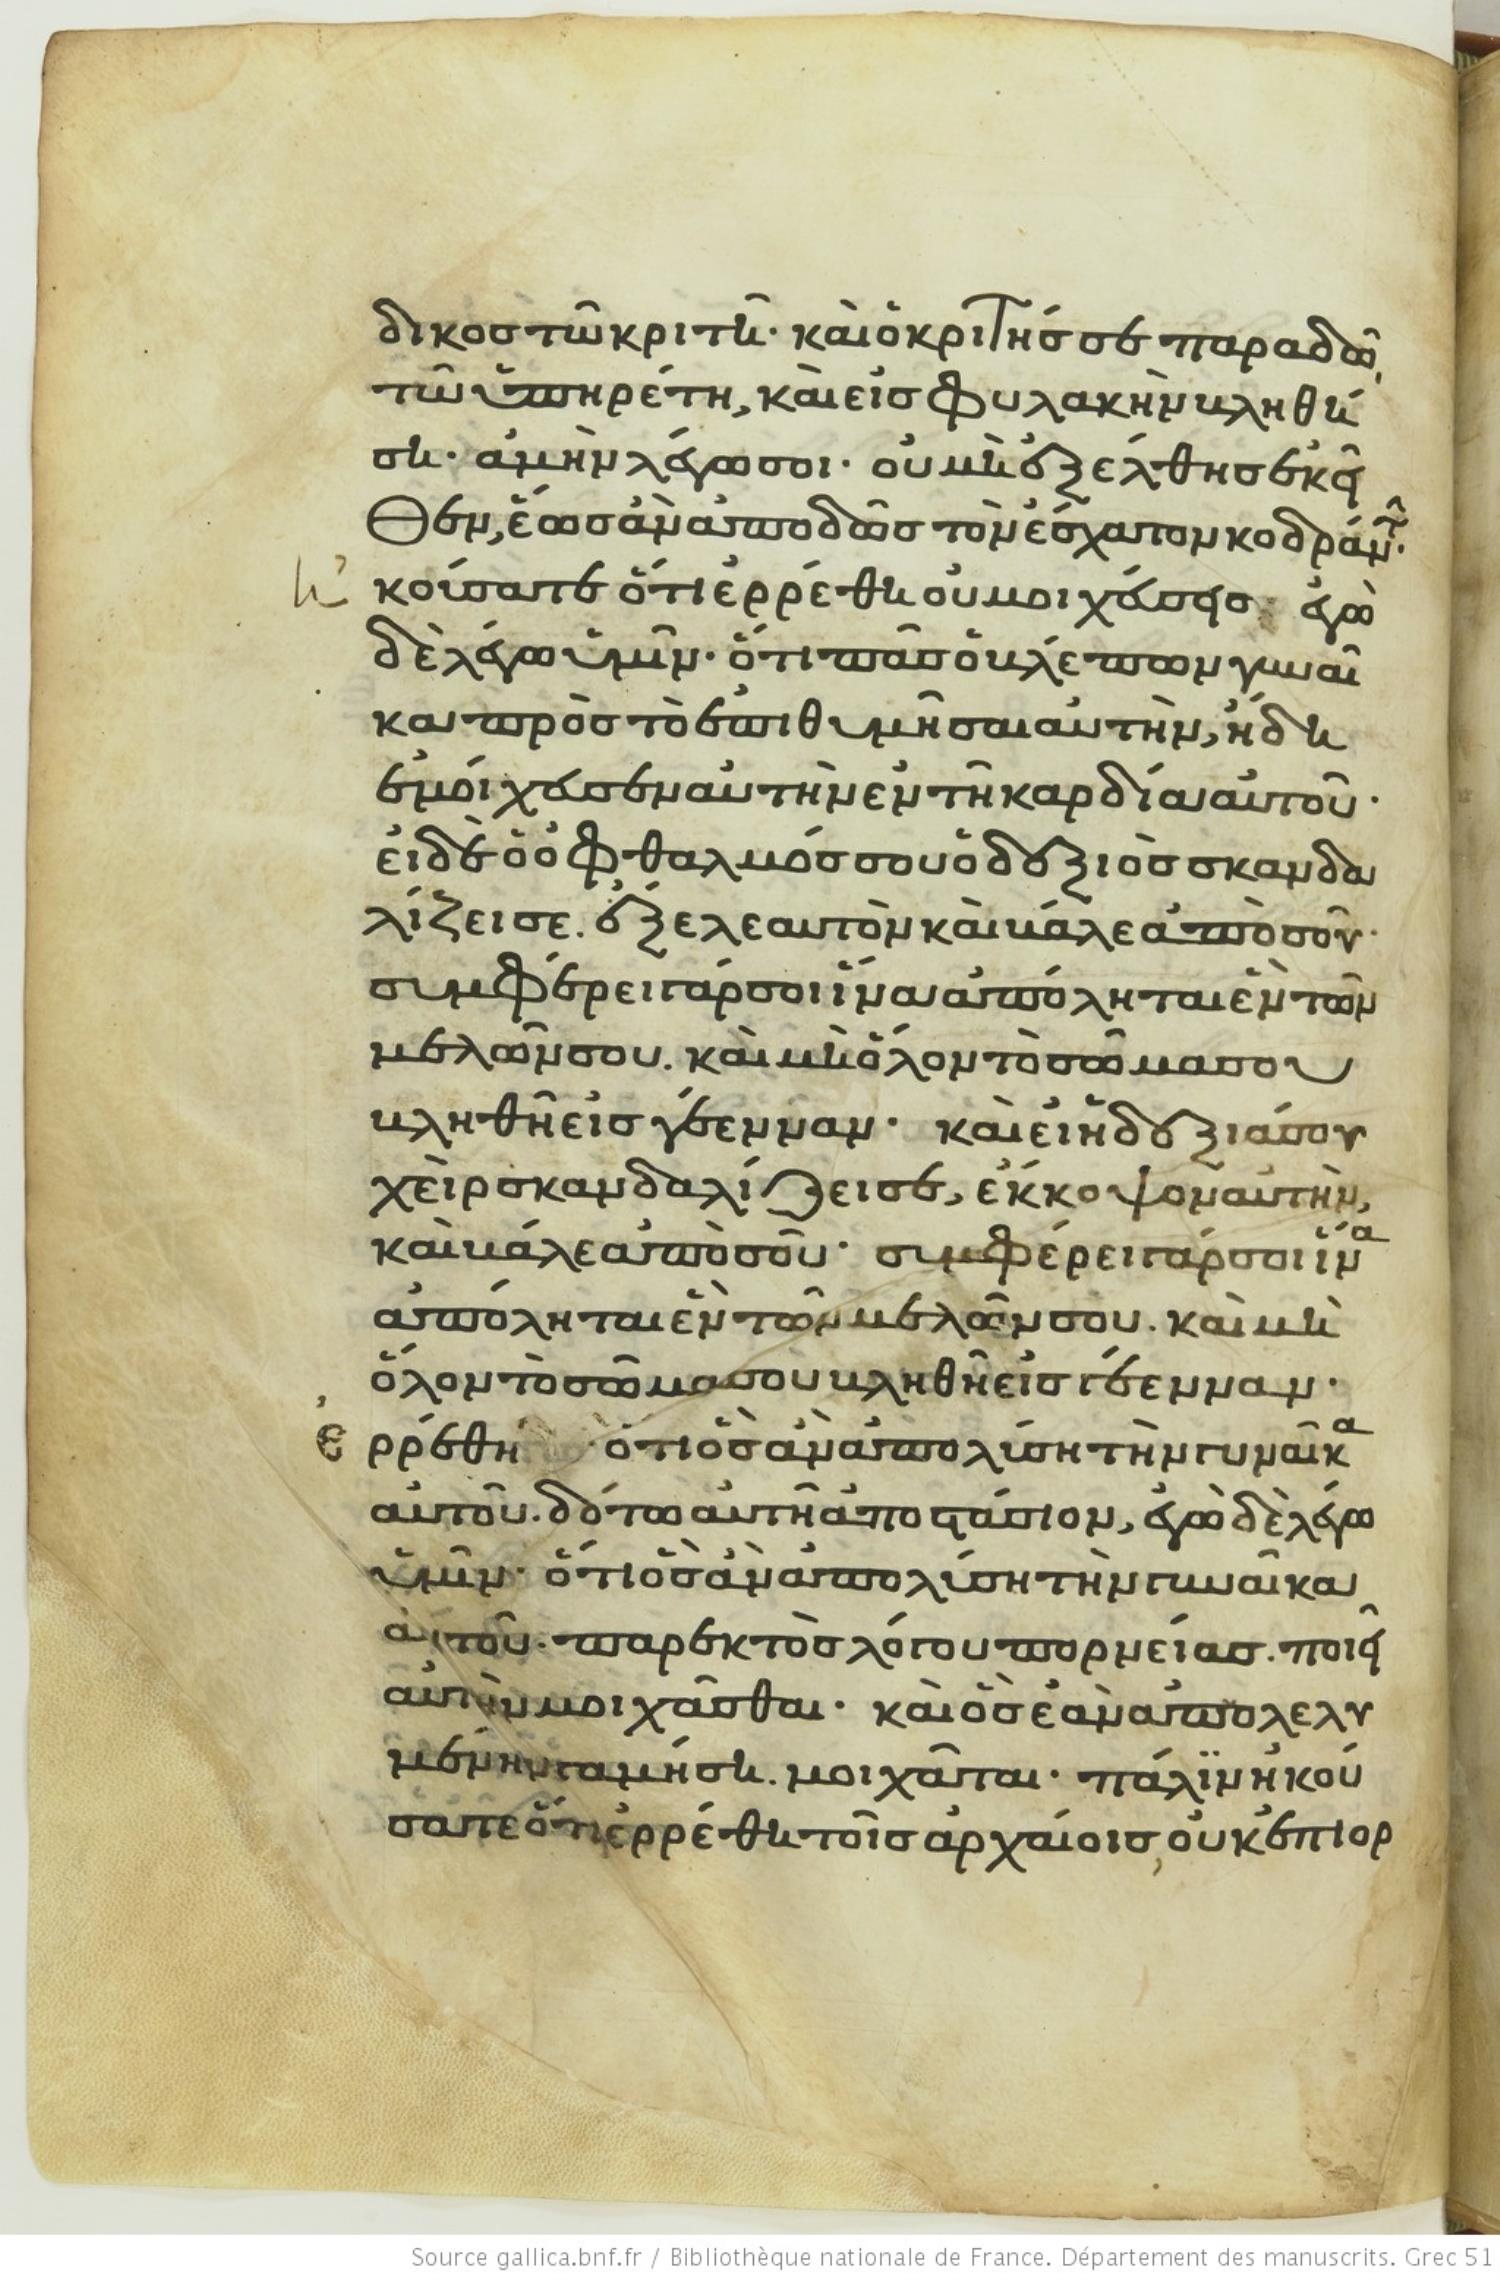 δικος τῶ κριτῆ· καὶ ὁ κριτής σε παραδῶ,
τῶ ὑπηρέτη, καὶ εἰς φυλακὴν βληθή
ση· ἀμὴν λέγω σοι· οὐ μὴ ἐξέλθης ἐκεῖ
θεν, ἕως ἂν ἀποδῶς τὸν ἔσχατον κοδράντ·
Ἠ κούσατε ὅτι ἐρρέθη οὐ μοιχεύσεις· ἐγὼ
δὲ λέγω ὑμῖν· ὅτι πᾶς ὁ βλέπων γυναῖ
κα πρὸς τὸ ἐπιθυμῆσαι αὐτὴν, ἤδη
ἐμοίχευσεν αὐτὴν ἐν τῆ καρδία αὐτοῦ·
εἰ δὲ ὁ ὀφθαλμός σου ὁ δεξιὸς σκανδα
λίζει σε. ἔξελε αὐτὸν καὶ βάλε ἀπὸ σοῦ·
συμφέρει γάρ σοι ἵνα ἀπόληται ἓν τῶν
μελῶν σου. καὶ μὴ ὅλον τὸ σῶμα σου
βληθῆ εἰς γέενναν· καὶ εἰ ἡ δεξιά σου
χεὶρ σκανδαλίζει σε, ἔκκοψον αὐτὴν,
καὶ βάλε ἀπὸ σοῦ· συμφέρει γάρ σοι ἵνα
ἀπόληται ἓν τῶν μελῶν σου. καὶ μὴ
ὅλον τὸ σῶμα σου βληθῆ εἰς γέενναν·
Ἐ ρρέθη · ὅτι ὃς ἂν ἀπολύση τὴν γυναῖκα
αὐτοῦ. δότω αὐτῆ ἀποστάσιον, ἐγὼ δὲ λέγω
ὑμῖν· ὅτι ὃς ἂν ἀπολύση τὴν γυναῖκα
αὐτοῦ· παρεκτὸς λόγου πορνείας. ποιεῖ
αὐτὴν μοιχᾶσθαι· καὶ ὃς ἐὰν ἀπολελυ
μένην γαμήση. μοιχᾶται· πάλϊν ἠκού
σατε ὅτι ἐρρέθη τοῖς ἀρχαίοις, οὐκ ἐπιορ
Source gallica.bnf.fr / Bibliothèque nationale de France. Département des manuscrits. Grec 51